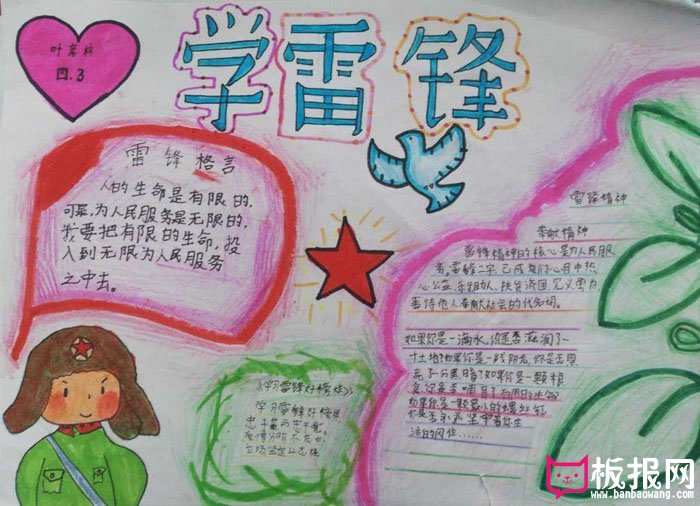 学雷锋
叶
四.3
雷锋格言
人的生命是有限的,
可是,为人民服务是无限的,
我要把有限的生命,投
入到无限为人民服务
之中去。
雷锋精神
奉献精神
雷锋精神的核心是为人民服
务,雷锋二字,已成我们心目中热
心公益、乐于助人、扶贫济困、见义勇为、
善待他人、奉献社会的代名词。
如果你是一滴水,你是否滋润了一
寸土地?如果你是一线阳光,你是否照
亮了一分黑暗?如果你是一颗粮
食,你是否哺育了有用的生命
如果你是一颗最小的螺丝钉
你是否永远坚守着你生
活的岗位……
《学习雷锋好榜样》
学习雷锋好榜样
忠于革命忠于党
爱憎分明不忘本
立场坚定斗志强
板报网
www.banbaowang.com